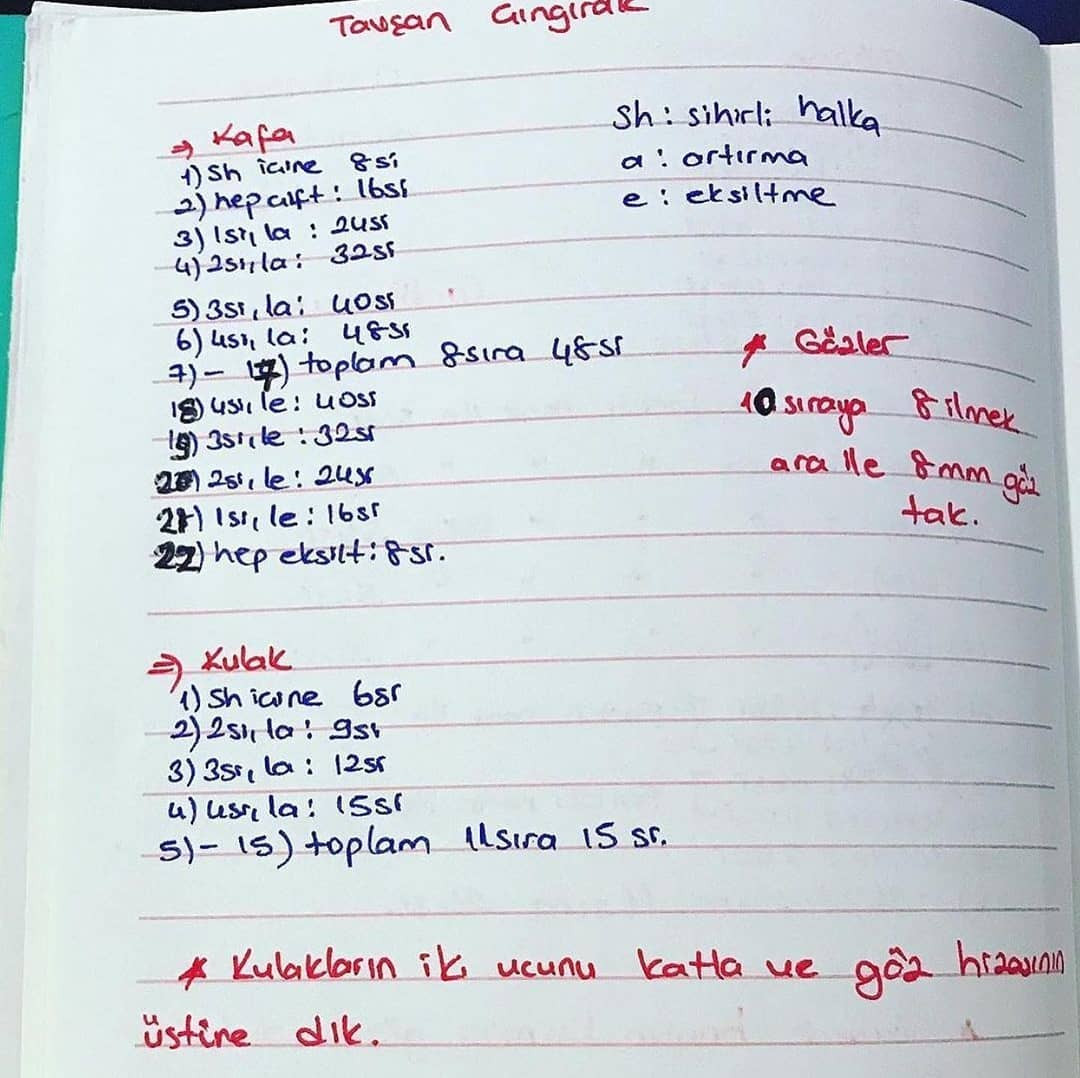 Tavşan Çıngırak
sh : sihirli halka
a : artırma
e : eksiltme
⇒ Kafa
1) Sh içine 8sı
2) hep çift : 16sı
3) 1sı, 1a : 24sı
4) 2sı, 1a : 32sı
5) 3sı, 1a : 40sı
6) 4sı, 1a : 48sı
7) - 17) toplam 8sıra 48sı
18) 4sı, 1e : 40sı
19) 3sı, 1e : 32sı
20) 2sı, 1e : 24sı
21) 1sı, 1e : 16sı
22) hep eksilt : 8sı.
* Gözler
10 sıraya 8 ilmek
ara ile 8mm göz
tak.
⇒ Kulak
1) Sh içine 6sı
2) 2sı, 1a : 9sı
3) 3sı, 1a : 12sı
4) 4sı, 1a : 15sı
5) - 15) toplam 11sıra 15 sı.
* Kulakların iki ucunu katla ve göz hizasının
üstine dik.